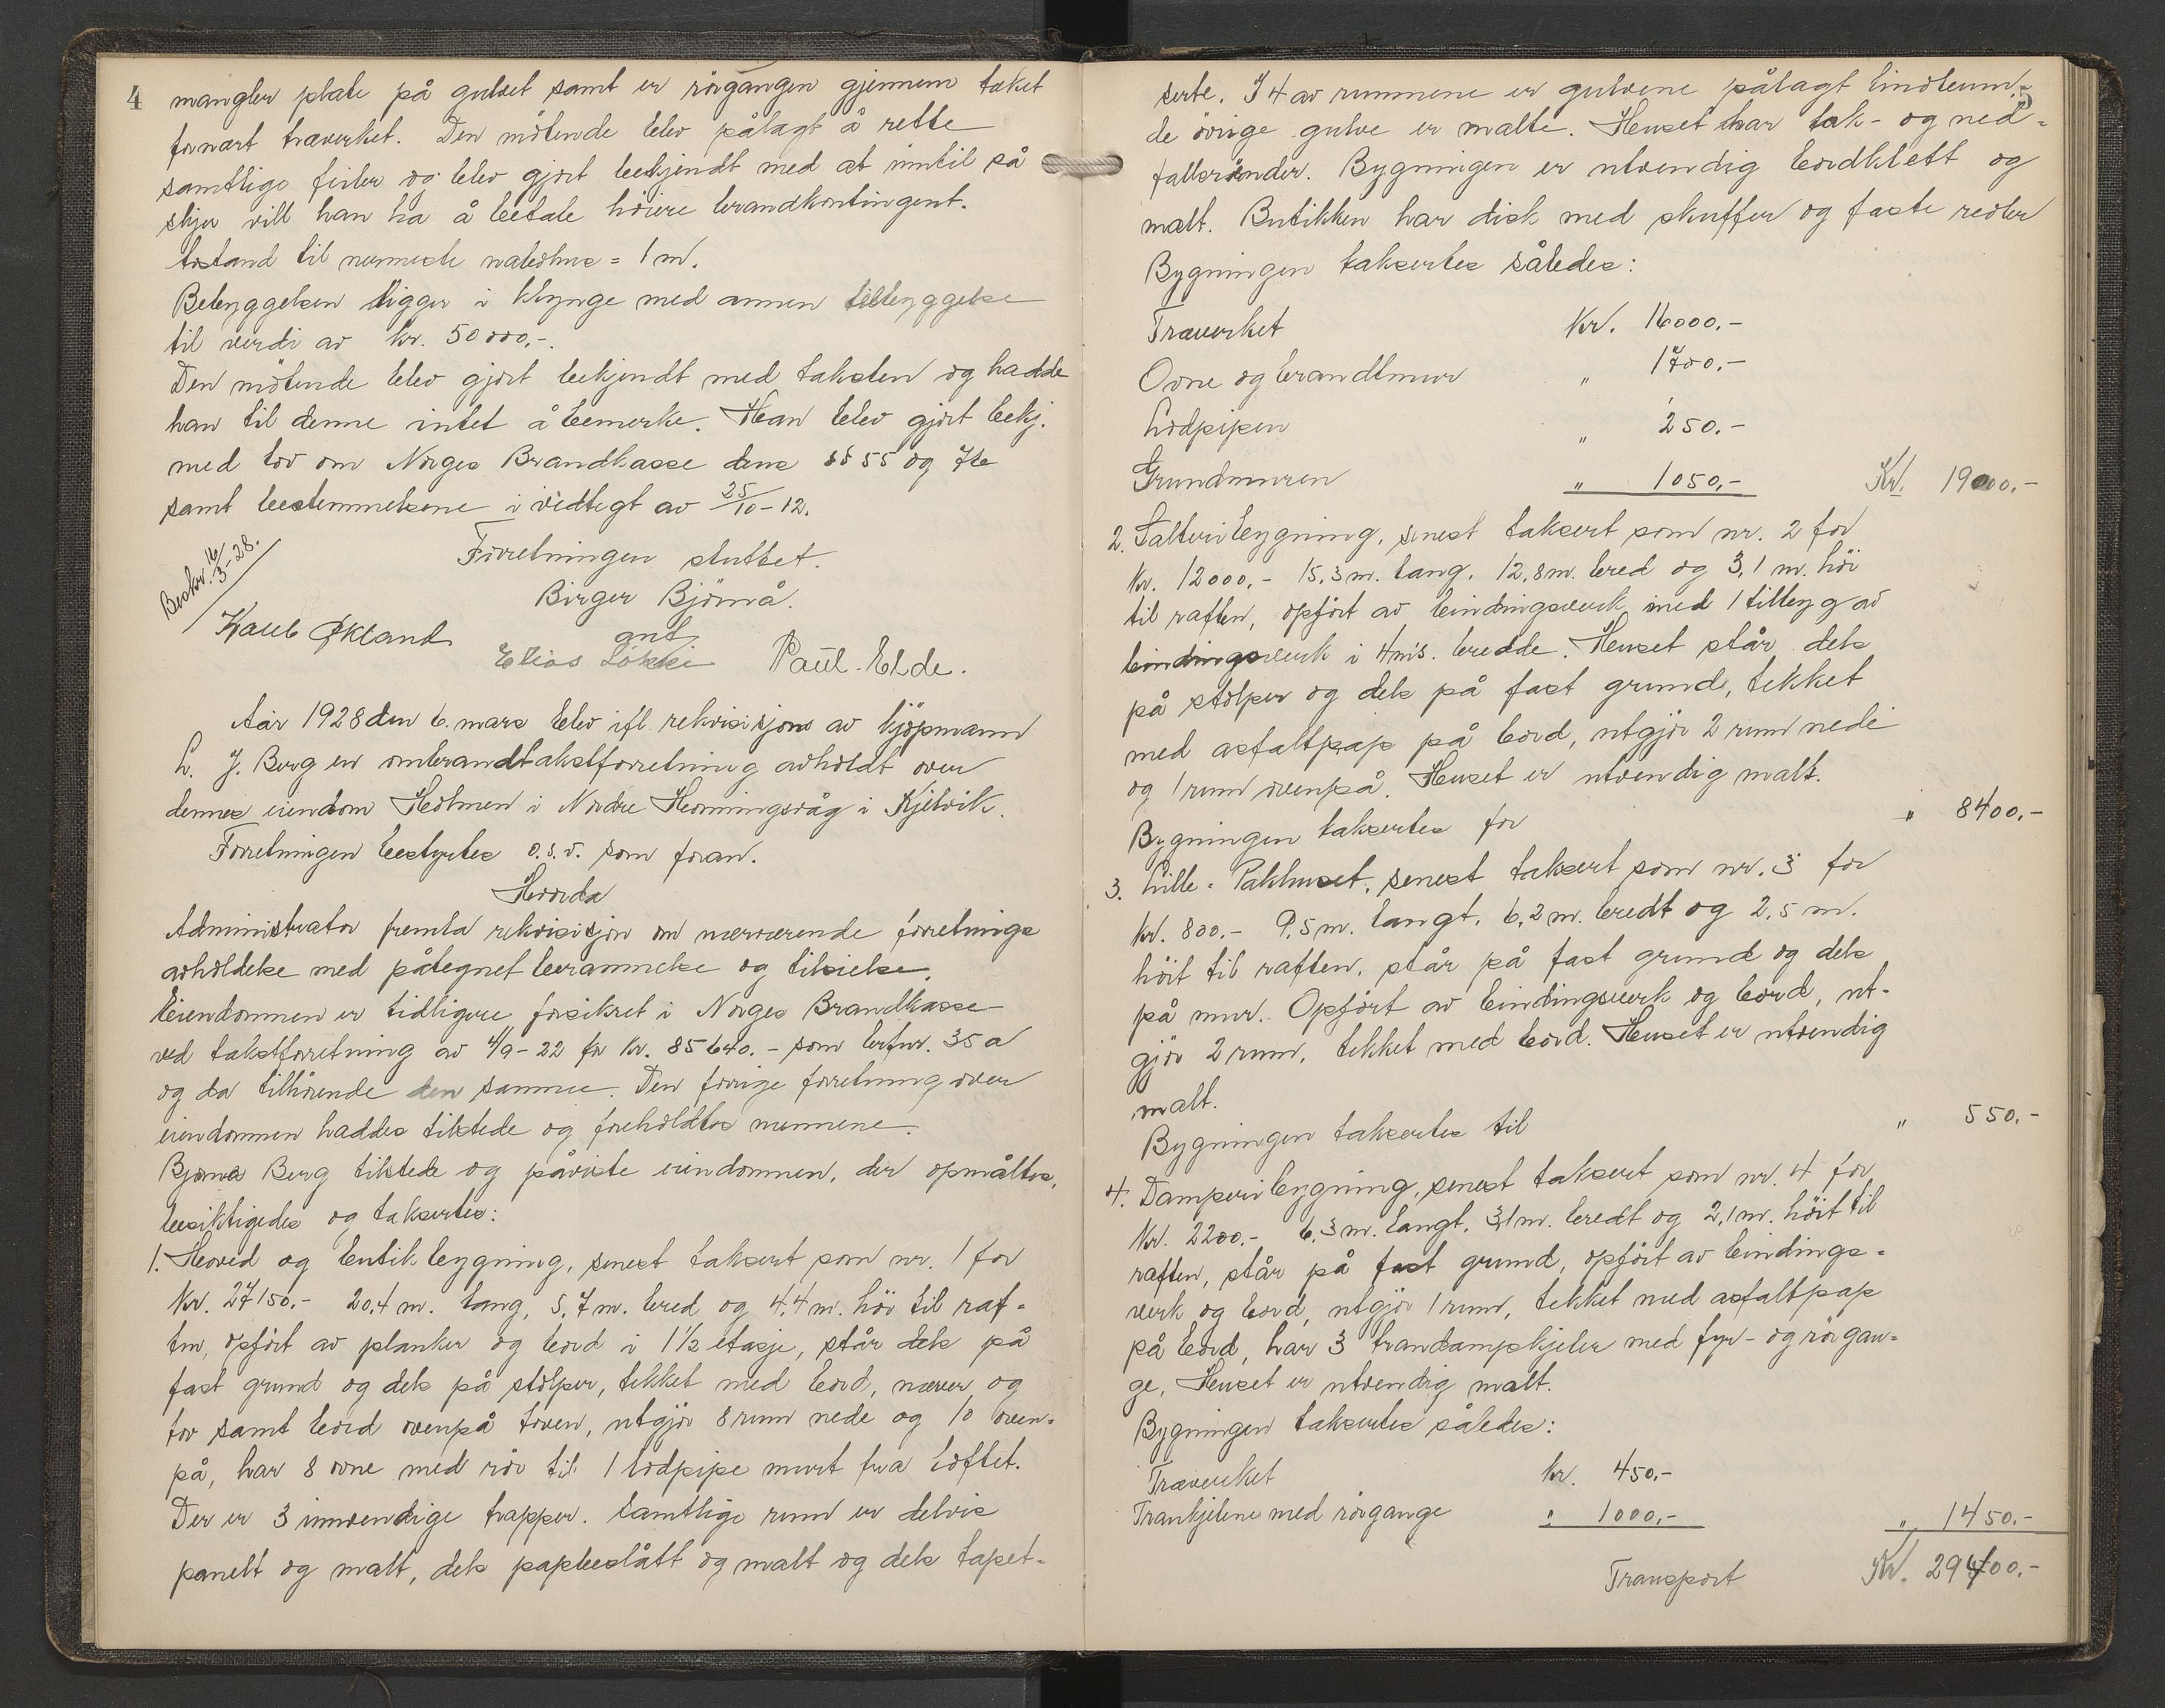 4
mangler plate på gulvet samt er rörgangen gjennem taket
for nært træverket. Den mötende blev pålagt å rette
samtlige feiler og blev gjort bekjendt med at inntil så
skjer vill han ha å betale höiere brandkontingent.
Avstand til nærmeste nabohus = 1 m.
Bebyggelsen ligger i klynge med annen bebyggelse
til verdi av kr. 50000,-.
Den mötende blev gjort bekjendt med taksten og hadde
han til denne intet å bemerke. Han blev gjort bekj.
med lov om Norges Brandkasse dens §§ 55 og 76
samt bestemmelsene i vedtegt av 25/10-12.
Forretningen sluttet.
Beskr. 16/3-28.
Birger Björnå.
Karl Økland
ant
Elias Lökke Paul Elde.
Aar 1928 den 6. mars blev ifl. rekvisisjon av kjöpmann
L. J. Berg en ombrandtakstforretning avholdt over
dennes eiendom Holmen i Nordre Honningsvåg i Kjelvik.
Forretningen bestyrtes o.s.v. som foran.
Hvorda
Administrator fremla rekvisisjon om nærværende forretnings
avholdelse med påtegnet berammelse og tilsielse.
Eiendommen er tidligere forsikret i Norges Brandkasse
ved takstforretning av 4/9-22 for kr. 85640.- som brfnr. 35 a
og da tilhörende den samme. Den forrige forretning over
eiendommen haddes tilstede og foreholdtes mennene.
Bjarne Berg tilstede og påviste eiendommen, der opmåltes,
besiktigedes og taksertes:
1. Hoved og butikbygning, senest taksert som nr. 1 for
Kr. 27150.- 20,4 m. lang, 5,7 m. bred og 4,4 m. höi til raf-
ten, opfört av planker og bord i 1 1/2 etasje, står dels på
fast grund og dels på stolper, tekket med bord, næver og
tov samt bord ovenpå toven, utgjör 8 rum nede og 10 oven-
på, har 8 ovne med rör til 1 lodpipe murt fra loftet.
Der er 3 innvendige trapper. Samtlige rum er delvis
panelt og malt, dels papbeslått og malt og dels tapet-
serte. I 4 av rummene er gulvene pålagt linoleum-
de övrige gulve er malte. Huset har tak- og ned-
fallsrender. Bygningen er utvendig bordklett og
malt. Butikken har disk med skuffer og faste reoler
Bygningen taksertes således:
Træverket Kr. 16000.-
Ovne og brandmur " 1700.-
Lodpipen " 250.-
Grundmuren " 1050,- Kr. 19000,-
2. Salteribygning, senest taksert som nr. 2 for
Kr. 12000,- 15,3 m. lang, 12,8 m. bred og 3,1 m. höi
til raften, opfört av bindingsverk med 1 tilbyg av
bindingsverk i 4 m's. bredde. Huset står dels
på stolper og dels på fast grund, tekket
med asfaltpap på bord, utgjör 2 rum nede
og 1 rum ovenpå. Huset er utvendig malt.
Bygningen taksertes for " 8400,-
3. Lille-Pakhuset, senest taksert som nr. 3 for
kr. 800.- 9,5 m. langt, 6,2 m. bredt og 2,5 m.
höit til raften, står på fast grund og dels
på mur. Opfört av bindingsverk og bord, ut-
gjör 2 rum, tekket med bord. Huset er utvendig
malt.
Bygningen taksertes til " 550,-
4. Damperibygning, senest taksert som nr. 4 for
Kr. 2200.- 6,3 m. langt, 3,1 m. bredt og 2,1 m. höit til
raften, står på fast grund, opfört av bindings-
verk og bord, utgjör 1 rum, tekket med asfaltpap
på bord, har 3 trandampkjeler med fyr- og rörgan-
ge. Huset er utvendig malt.
Bygningen taksertes således:
Træverket kr. 450,-
Trankjelene med rörgange " 1000,- " 1450.-
Transport Kr. 29400.-